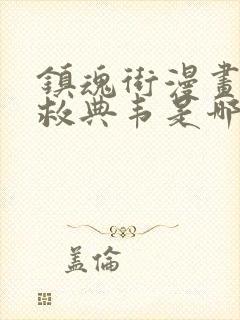 鎮魂街漫畫
救典韦是哪
盖倫